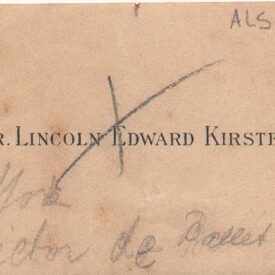 ALS
R. LINCOLN EDWARD KIRSTE
York
ector de Ballet